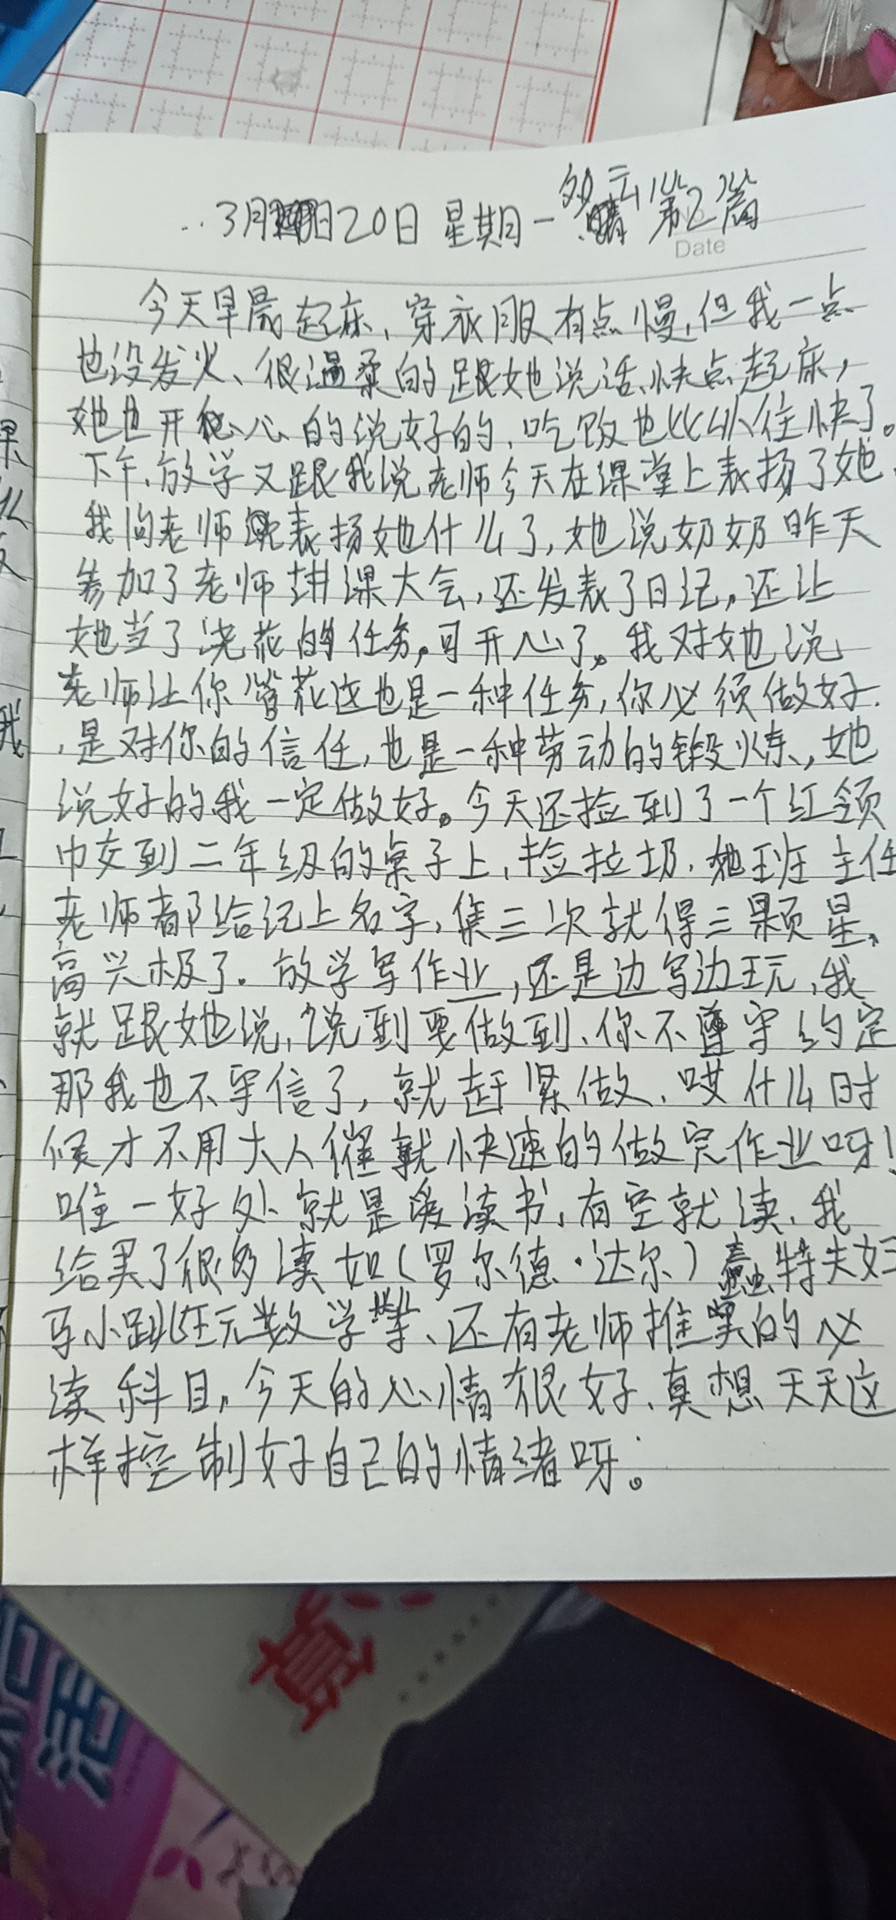 3月20日 星期一 多云 第2篇
Date
今天早晨起床、穿衣服有点慢,但我一点
也没发火、很温柔的跟她说话、快点起床,
她也开心的说好的、吃饭也比以往快了。
下午、放学又跟我说老师今天在课堂上表扬了她
我问老师表扬她什么了,她说奶奶昨天
参加了老师讲课大会,还发表了日记,还让
她当了浇花的任务,可开心了。我对她说
老师让你管花这也是一种任务,你必须做好.
,是对你的信任,也是一种劳动的锻炼,她
说好的我一定做好。今天还捡到了一个红领
巾交到二年级的桌子上,捡垃圾.她班主任
老师都给记上名字,集三次就得三颗星、
高兴极了.放学写作业,还是边写边玩,我
就跟她说,说到要做到、你不遵守约定
那我也不守信了,就赶紧做、哎什么时
候才不用大人催就快速的做完作业呀!
唯一好处就是爱读书,有空就读.我
给买了很多读如(罗尔德·达尔)蠢特夫妇
写小跳狂元数学等、还有老师推的必
读科目,今天的心情很好、真想天天这
样控制好自己的情绪呀。
章